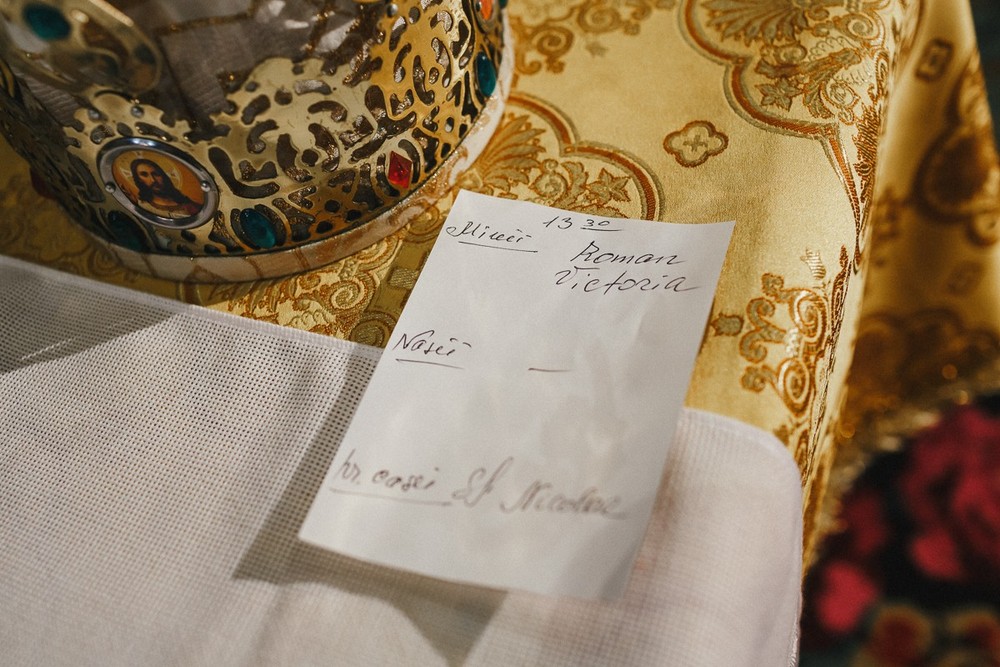 13 30
Mirii Roman
Victoria
Nașii —
hr. casei Sf Nicolae